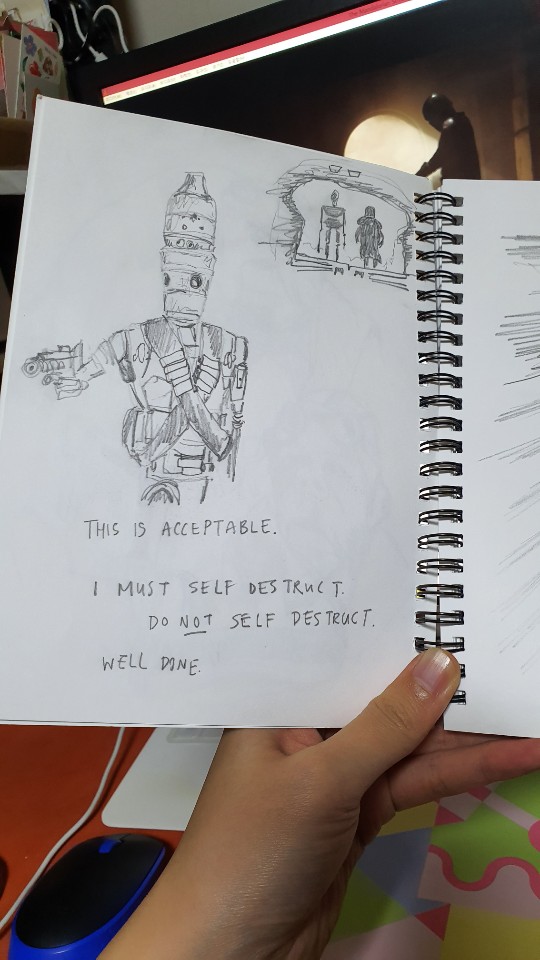 THIS IS ACCEPTABLE.
I MUST SELF DESTRUCT.
DO NOT SELF DESTRUCT.
WELL DONE.